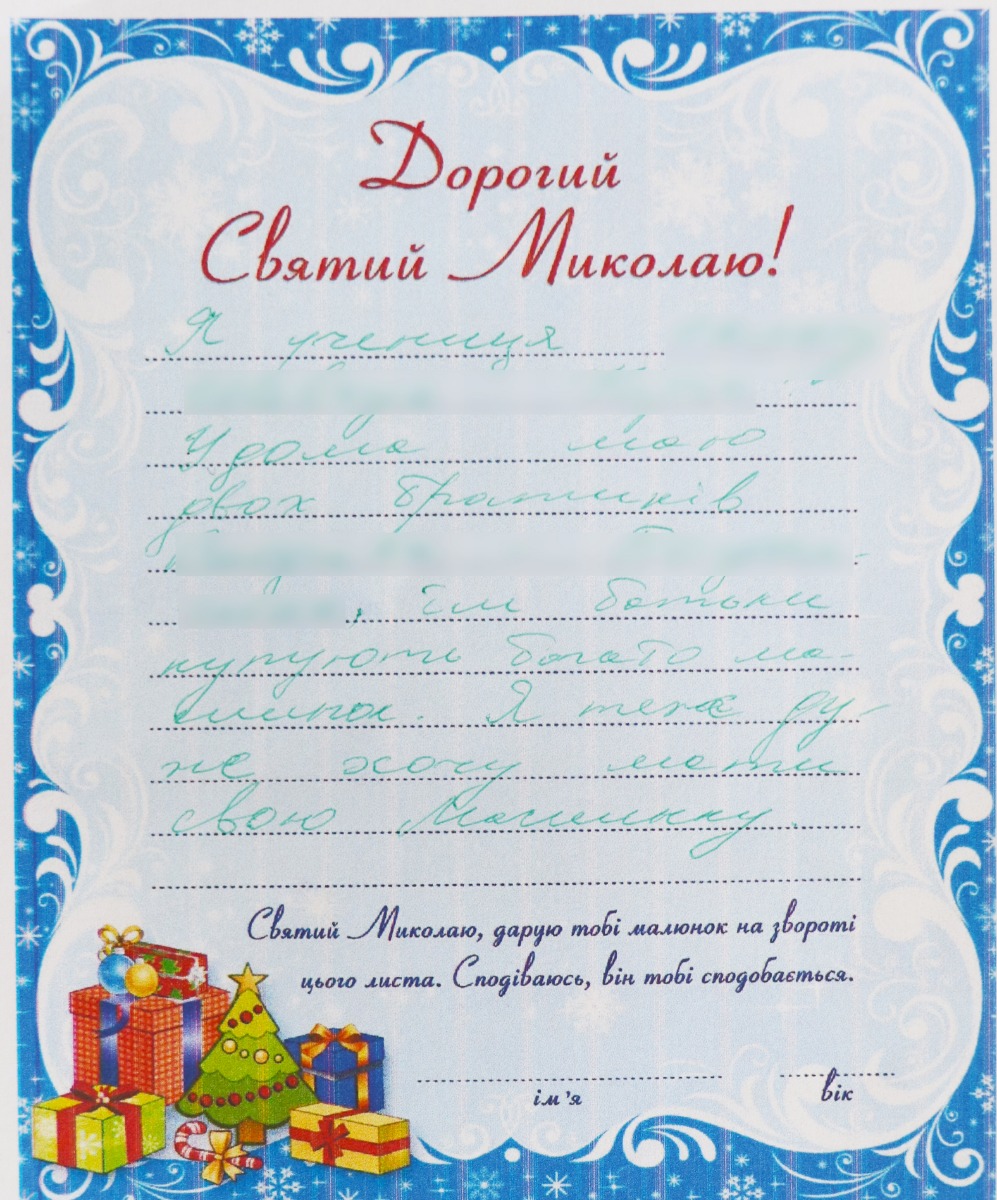 Дорогий
Святий Миколаю!
Я учениця
Удома маю
двох братиків
, їм батьки
купують багато ма-
шинок. Я теж ду-
же хочу мати
свою машинку.
Святий Миколаю, дарую тобі малюнок на звороті
цього листа. Сподіваюсь, він тобі сподобається.
ім'я
вік